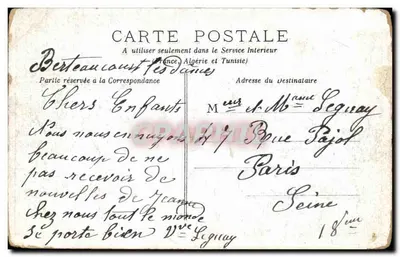 CARTE POSTALE
A utiliser seulement dans le Service Intérieur
(France, Algérie et Tunisie)
Berteaucourt les dames
Partie réservée à la Correspondance
Chers Enfants
Nous nous ennuyons
beaucoup de ne
pas recevoir de
nouvelles de Jeanne
chez nous tout le monde
se porte bien Vve Legnay
Adresse du Destinataire
Meur et Mame Legnay
47 Rue Pajol
Paris
Seine
18eme